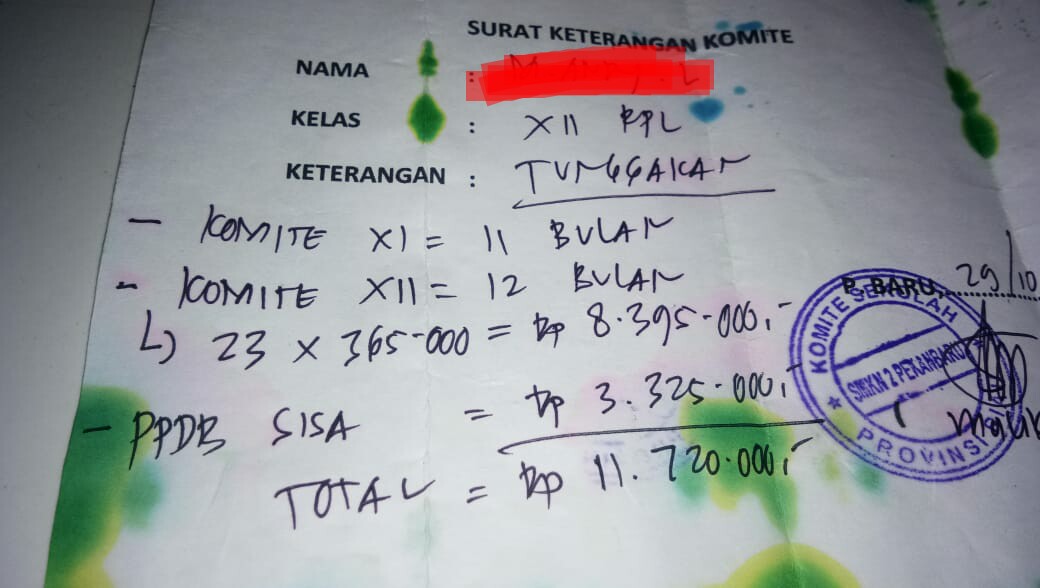 SURAT KETERANGAN KOMITE
NAMA :
KELAS : XII RPL
KETERANGAN : TUNGGAKAN
- KOMITE XI = 11 BULAN
- KOMITE XII = 12 BULAN
↳ 23 x 365.000 = Rp 8.395.000,-
- PPDB SISA = Rp 3.325.000,-
TOTAL = Rp 11.720.000,-
P. BARU, 29/10
KOMITE SEKOLAH
SMKN 2 PEKANBARU
PROVINSI